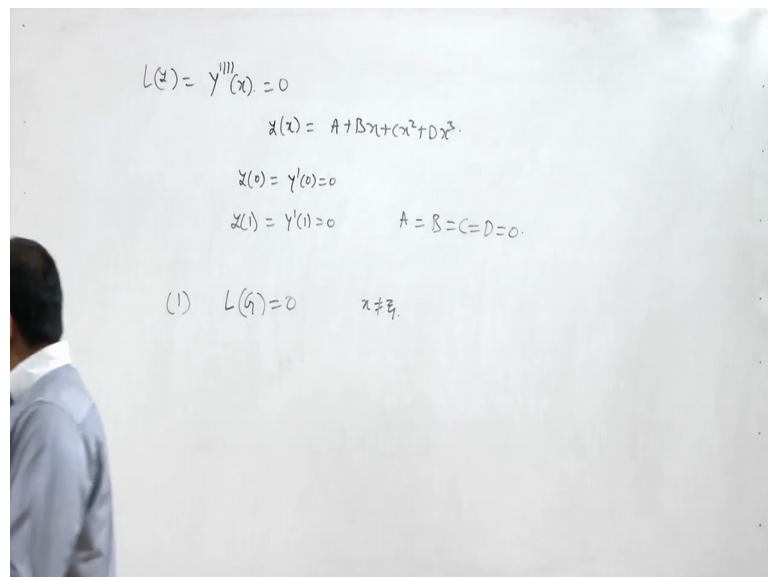 L(y) = y''''(x) = 0
y(x) = A + Bx + Cx² + Dx³.
y(0) = y'(0) = 0
y(1) = y'(1) = 0 A = B = C = D = 0.
(1) L(G) = 0 x ≠ ξ.